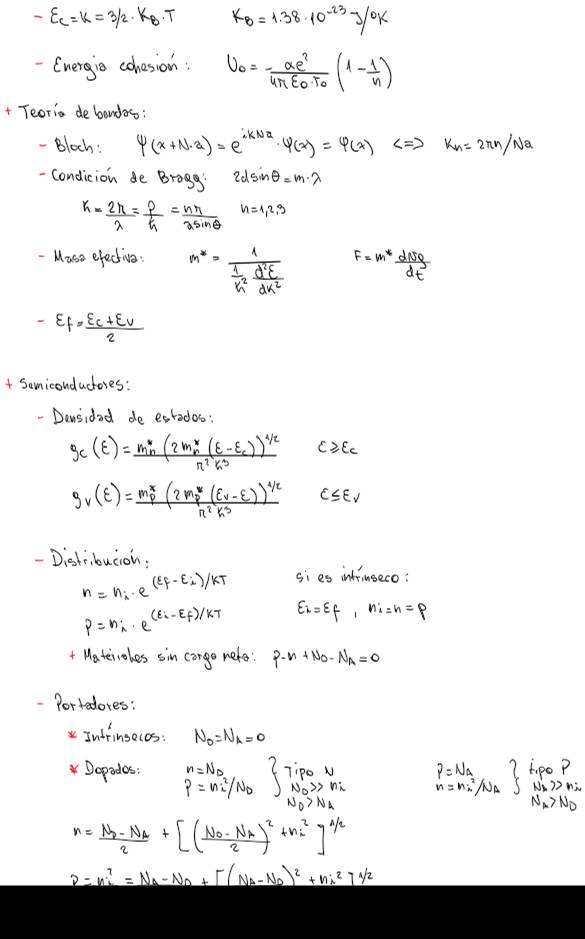 - Ec = K = 3/2 · KB · T    KB = 1.38 · 10^-23 J/ºK
- Energía cohesión: U0 = -αe²/(4πε0·r0) (1 - 1/n)
+ Teoría de bandas:
- Bloch: Ψ(x+N·a) = e^(ikNa) · Ψ(x) = Ψ(x) <=> Kn = 2πn/Na
- Condición de Bragg: 2dsinθ = m·λ
K = 2π/λ = p/ħ = nπ/(asinθ)    n=1,2,3
- Masa efectiva: m* = 1/((1/ħ²)(d²ε/dK²))    F = m* dvg/dt
- εf = (εc + εv)/2
+ Semiconductores:
- Densidad de estados:
gc(ε) = mn* (2mn* (ε-εc))^1/2 / (π²ħ³)    ε ≥ εc
gv(ε) = mp* (2mp* (εv-ε))^1/2 / (π²ħ³)    ε ≤ εv
- Distribución:
n = ni · e^((εf-εi)/KT)    si es intrínseco:
p = ni · e^((εi-εf)/KT)    εi = εf , ni=n=p
+ Materiales sin carga neta: p-n+ND-NA=0
- Portadores:
* Intrínsecos: ND=NA=0
* Dopados: n=ND } Tipo N    p=NA } tipo P
p = ni²/ND    ND>>ni    n=ni²/NA    NA>>ni
ND>NA    NA>ND
n = (ND-NA)/2 + [((ND-NA)/2)² + ni²]^1/2